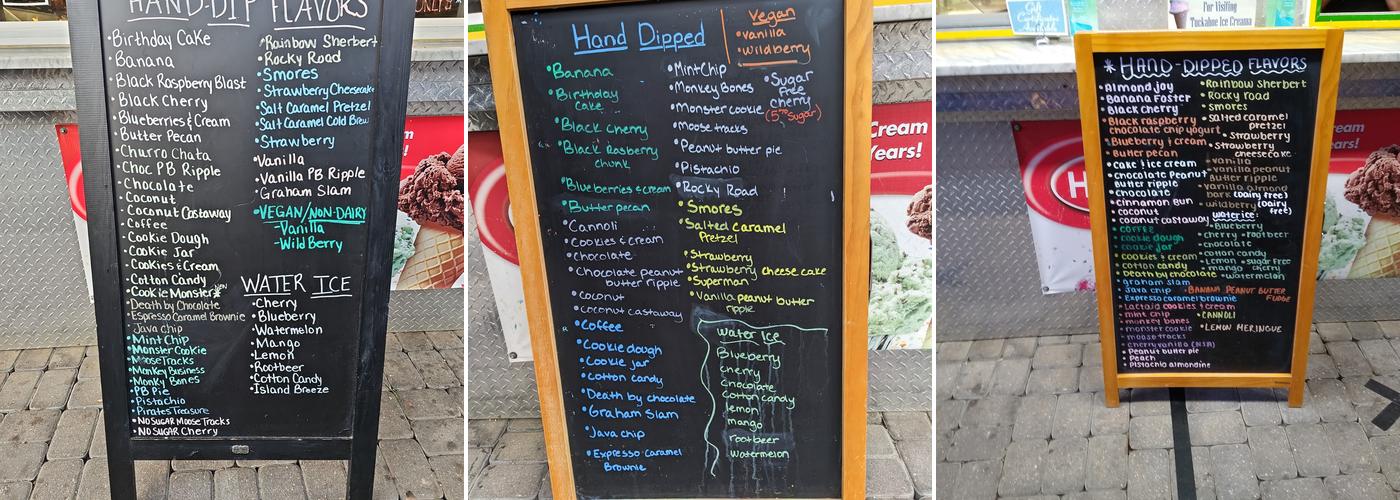 HAND-DIP FLAVORS
•Birthday Cake
•Banana
•Black Raspberry Blast
•Black Cherry
•Blueberries & Cream
•Butter Pecan
•Churro Chata
•Choc PB Ripple
•Chocolate
•Coconut
•Coconut Castaway
•Coffee
•Cookie Dough
•Cookie Jar
•Cookies & Cream
•Cotton Candy
•Cookie Monster
•Death by Chocolate
•Espresso Caramel Brownie
•Java chip
•Mint Chip
•Monster Cookie
•Moose Tracks
•Monkey Business
•Monky Bones
•PB Pie
•Pistachio
•Pirates Treasure
•NO SUGAR Moose Tracks
•NO SUGAR Cherry
•Rainbow Sherbert
•Rocky Road
•Smores
•Strawberry Cheesecake
•Salt Caramel Pretzel
•Salt Caramel Cold Brew
•Strawberry
•Vanilla
•Vanilla PB Ripple
•Graham Slam
•VEGAN/NON-DAIRY
-Vanilla
-Wild Berry
WATER ICE
•Cherry
•Blueberry
•Watermelon
•Mango
•Lemon
•Rootbeer
•Cotton Candy
•Island Breeze
Hand Dipped
Vegan
•vanilla
•wildberry
•Banana
•Birthday
Cake
•Black cherry
•Black Rasberry
chunk
•Blueberries & cream
•Butter pecan
•Cannoli
•Cookies & cream
•chocolate
•Chocolate peanut
butter ripple
•coconut
•coconut castaway
•Coffee
•Cookie dough
•Cookie jar
•cotton candy
•Death by chocolate
•Graham Slam
•Java chip
•Espresso caramel
Brownie
•Mint Chip
•Monkey Bones
•Monster cookie
•Moose tracks
•Peanut butter pie
•Pistachio
•Rocky Road
•Smores
•Salted caramel
Pretzel
•Strawberry
•Strawberry cheese cake
•Superman
•Vanilla peanut butter
ripple
•Sugar
free
cherry
(5% sugar)
Water Ice
Blueberry
cherry
chocolate
cotton candy
lemon
mango
rootbeer
watermelon
Cream
Years!
For Visiting
Tuckahoe Ice Creama
* HAND-DIPPED FLAVORS
•Almond joy
•Banana Foster
•Black cherry
•Black raspberry
chocolate chip yogurt
•Blueberry & cream
•Butter pecan
•cake & ice cream
•chocolate Peanut
Butter ripple
•chocolate
•cinnamon bun
•coconut
•coconut castaway
•coffee
•cookie dough
•cookie jar
•cookies & cream
•cotton candy
•Death by chocolate
•graham slam
•Java chip
•Espresso caramel brownie
•Lactaid cookies & cream
•mint chip
•monkey bones
•monster cookie
•moose tracks
•cherry vanilla (NSA)
•Peanut butter pie
•Peach
•Pistachio almondine
•Rainbow Sherbert
•Rocky road
•smores
•salted caramel
pretzel
•Strawberry
•Strawberry
cheesecake
•vanilla
•vanilla peanut
butter ripple
•vanilla almond
bark (dairy free)
•wildberry (dairy
free)
water ice:
•Blueberry
•cherry •rootbeer
•chocolate
•cotton candy
•Lemon •sugar free
cherry
•mango •watermelon
•BANANA PEANUT BUTTER
FUDGE
•CANNOLI
•LEMON MERINGUE